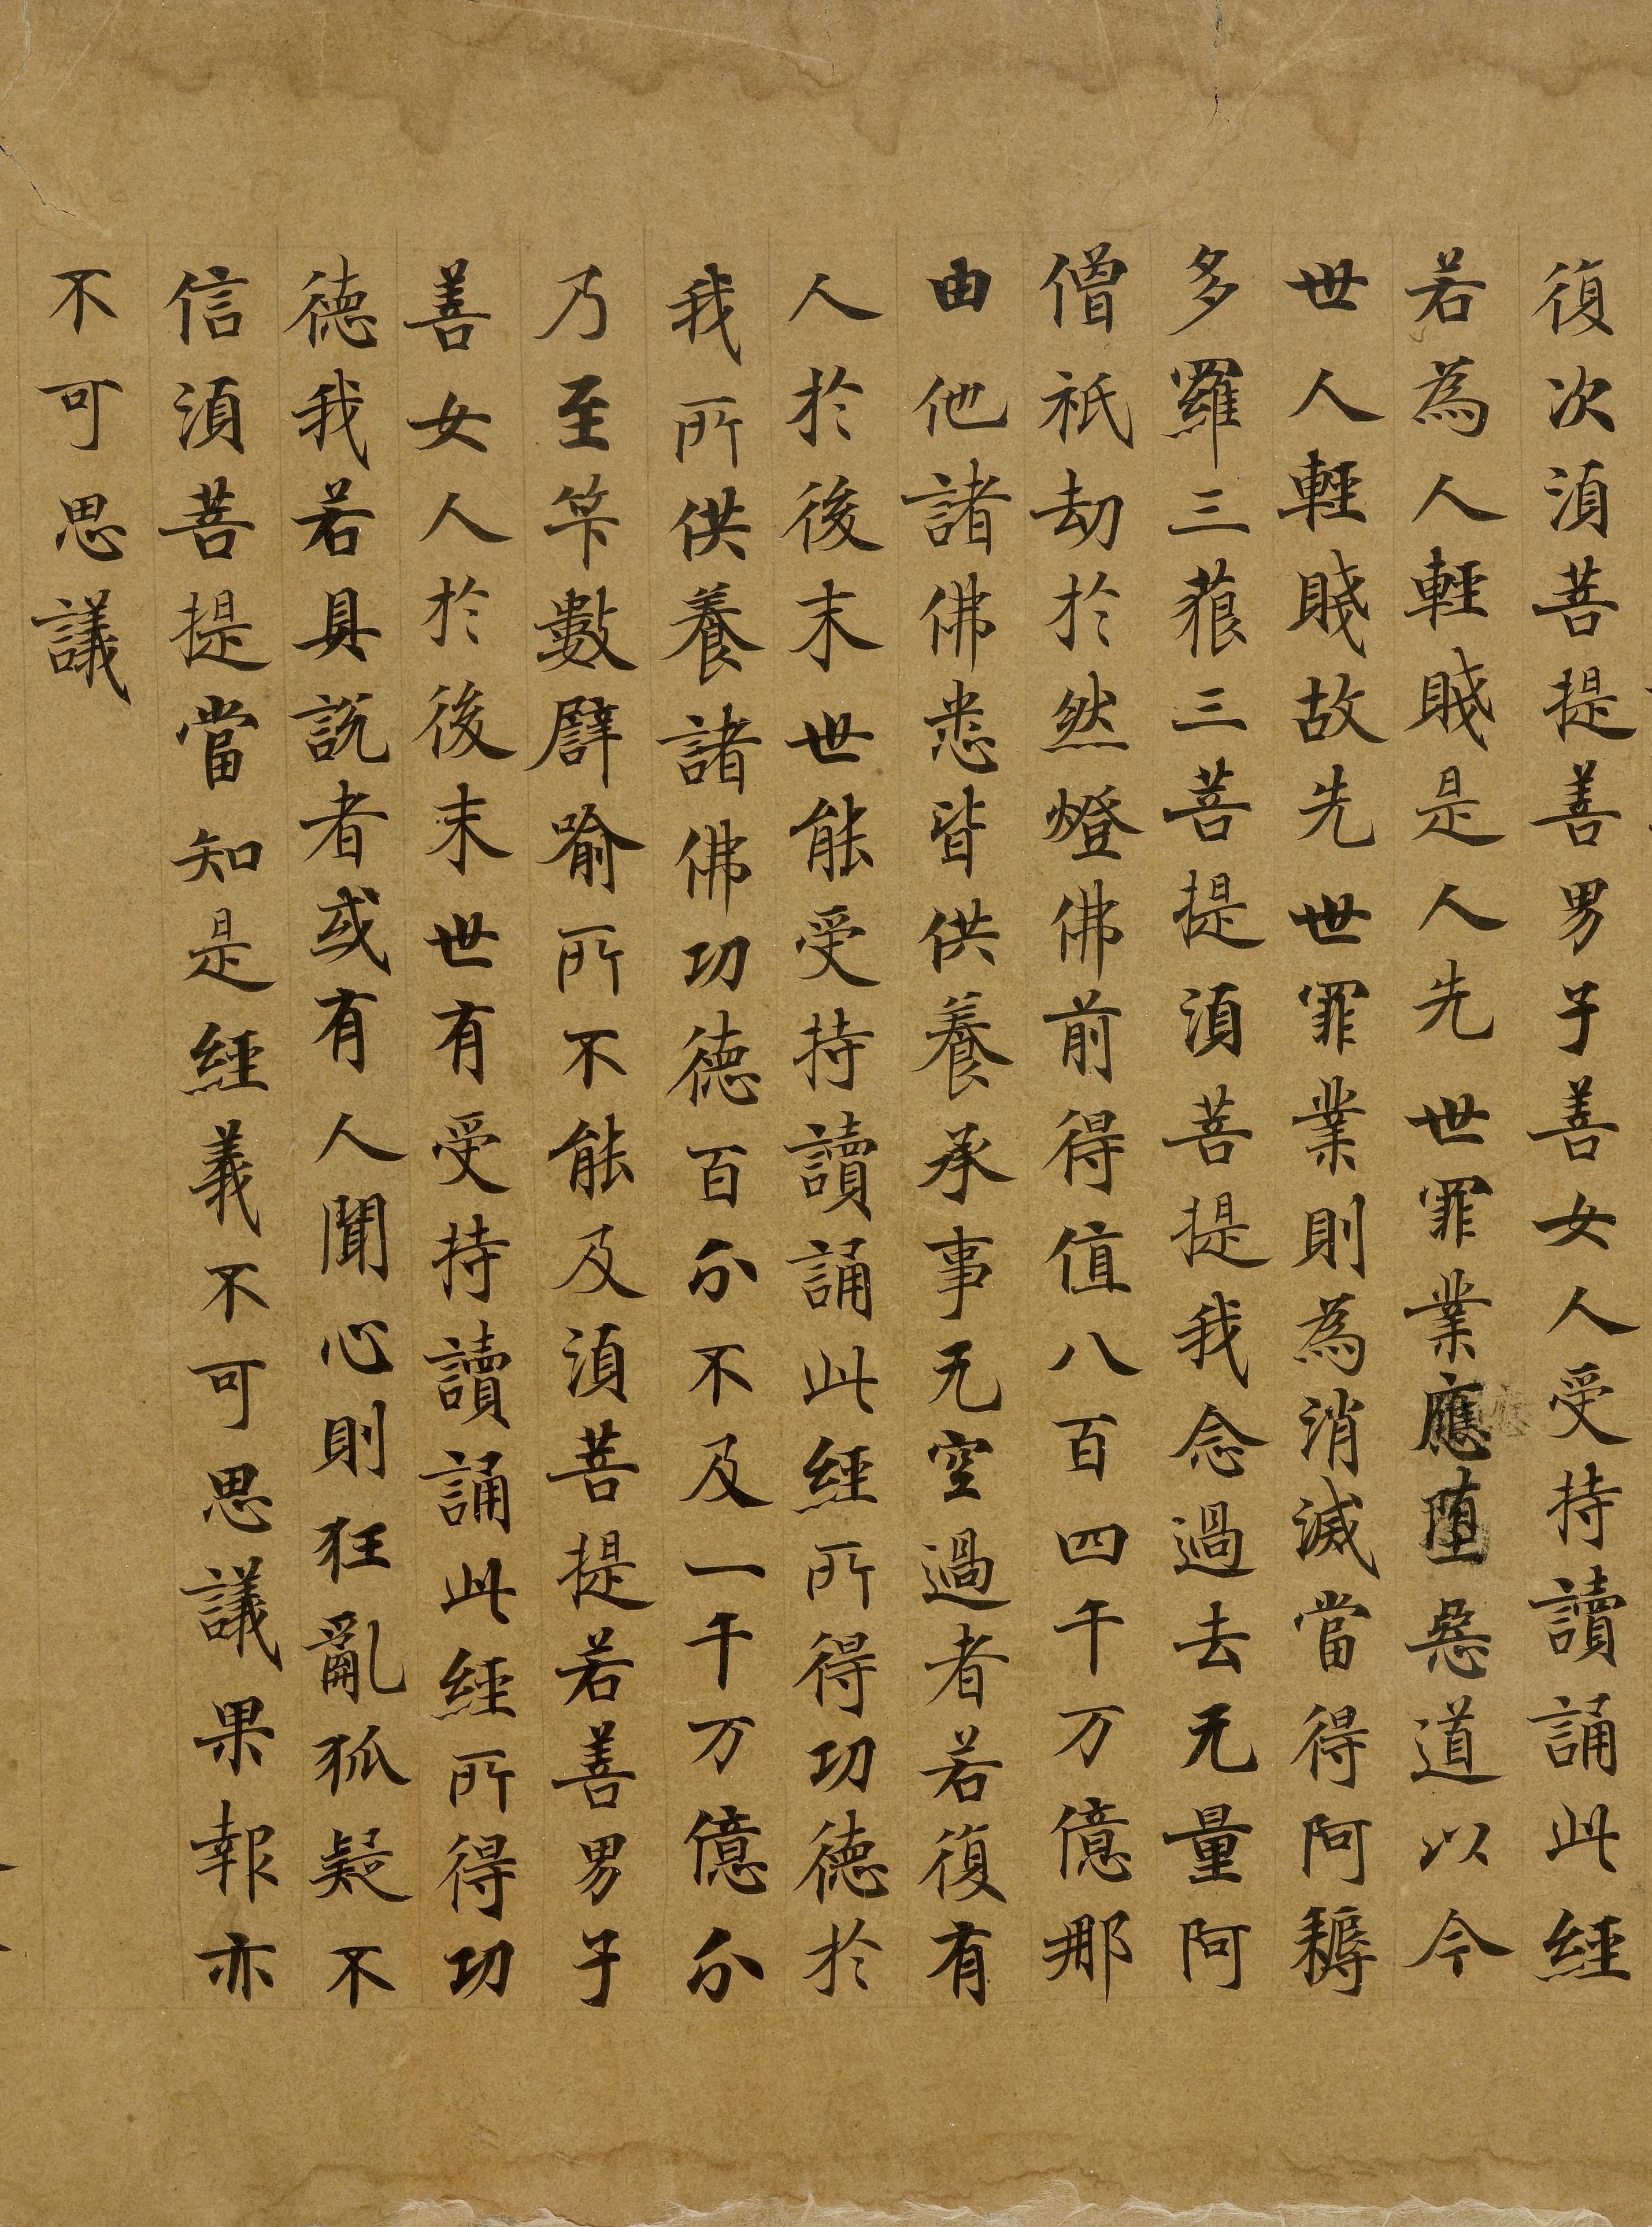 復次湏菩提善男子善女人受持讀誦此經
若為人輕賎是人先世罪業應堕惡道以今
世人輕賎故先世罪業則為消滅當得阿耨
多羅三藐三菩提湏菩提我念過去无量阿
僧祇劫於然燈佛前得值八百四千万億那
由他諸佛悉皆供養承事无空過者若復有
人於後末世能受持讀誦此經所得功德於
我所供養諸佛功德百分不及一千万億分
乃至筭數譬喻所不能及湏菩提若善男子
善女人於後末世有受持讀誦此經所得功
德我若具說者或有人聞心則狂亂狐疑不
信湏菩提當知是經義不可思議果報亦
不可思議